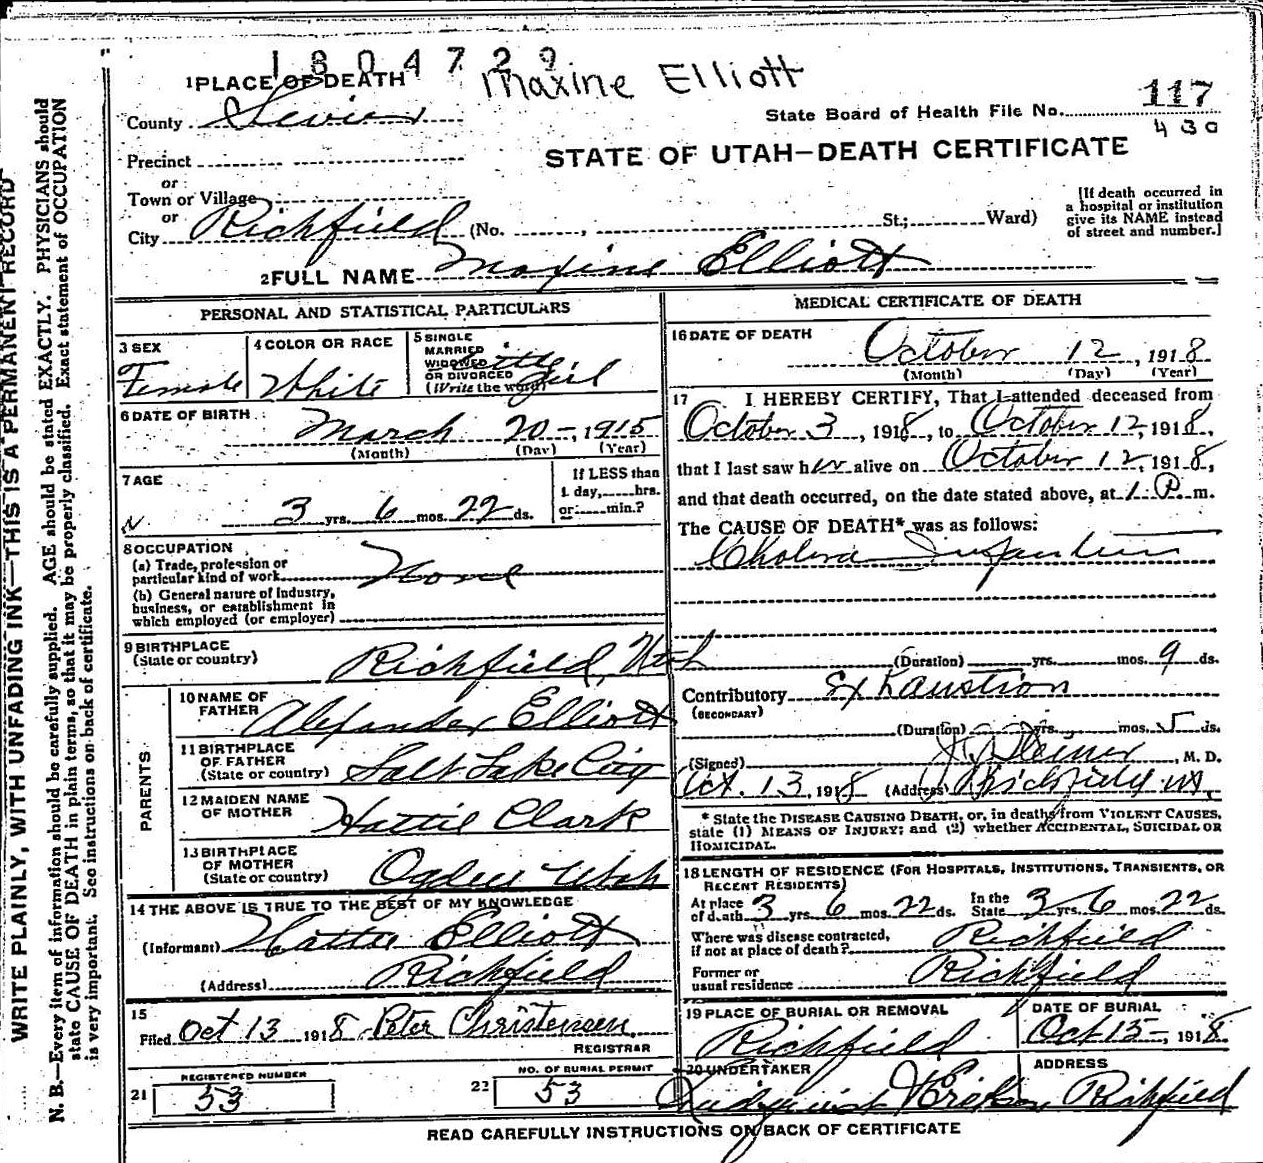 1804729
Maxine Elliott
1 PLACE OF DEATH
County Sevier
State Board of Health File No. 117
430
Precinct
STATE OF UTAH—DEATH CERTIFICATE
or
Town or Village
or
City Richfield (No. , St.; Ward)
[If death occurred in
a hospital or institution
give its NAME instead
of street and number.]
2 FULL NAME Maxine Elliott
PERSONAL AND STATISTICAL PARTICULARS
3 SEX
Female
4 COLOR OR RACE
White
5 SINGLE
MARRIED
WIDOWED
OR DIVORCED
(Write the word)
girl
6 DATE OF BIRTH
March 20—, 1915
(Month) (Day) (Year)
7 AGE
3 yrs. 6 mos. 22 ds.
If LESS than
1 day, hrs.
or min.?
8 OCCUPATION
(a) Trade, profession or
particular kind of work None
(b) General nature of industry,
business, or establishment in
which employed (or employer)
9 BIRTHPLACE
(State or country) Richfield, Utah
PARENTS
10 NAME OF
FATHER Alexander Elliott
11 BIRTHPLACE
OF FATHER
(State or country) Salt Lake City
12 MAIDEN NAME
OF MOTHER Hattie Clark
13 BIRTHPLACE
OF MOTHER
(State or country) Ogden Utah
14 THE ABOVE IS TRUE TO THE BEST OF MY KNOWLEDGE
(Informant) Hattie Elliott
(Address) Richfield
15
Filed Oct 13 1918 Peter Christensen
REGISTRAR
21 REGISTERED NUMBER
53
22 NO. OF BURIAL PERMIT
53
MEDICAL CERTIFICATE OF DEATH
16 DATE OF DEATH
October 12, 1918
(Month) (Day) (Year)
17 I HEREBY CERTIFY, That I attended deceased from
October 3, 1918, to October 12, 1918,
that I last saw her alive on October 12, 1918,
and that death occurred, on the date stated above, at 1 P. m.
The CAUSE OF DEATH* was as follows:
Cholera Infantum
(Duration) yrs. mos. 9 ds.
Contributory Exhaustion
(SECONDARY)
(Duration) yrs. mos. 5 ds.
(Signed) Steiner, M. D.
Oct. 13, 1918 (Address) Richfield Ut.
* State the DISEASE CAUSING DEATH, or, in deaths from VIOLENT CAUSES,
state (1) MEANS OF INJURY; and (2) whether ACCIDENTAL, SUICIDAL OR
HOMICIDAL.
18 LENGTH OF RESIDENCE (FOR HOSPITALS, INSTITUTIONS, TRANSIENTS, OR
RECENT RESIDENTS)
At place
of death 3 yrs 6 mos. 22 ds.
In the
State 3 yrs 6 mos. 22 ds.
Where was disease contracted,
if not at place of death? Richfield
Former or
usual residence Richfield
19 PLACE OF BURIAL OR REMOVAL
Richfield
DATE OF BURIAL
Oct 15—, 1918
20 UNDERTAKER
ADDRESS
Richfield
READ CAREFULLY INSTRUCTIONS ON BACK OF CERTIFICATE
WRITE PLAINLY, WITH UNFADING INK—THIS IS A PERMANENT RECORD
N. B.—Every item of information should be carefully supplied. AGE should be stated EXACTLY. PHYSICIANS should
state CAUSE OF DEATH in plain terms, so that it may be properly classified. Exact statement of OCCUPATION
is very important. See instructions on back of certificate.